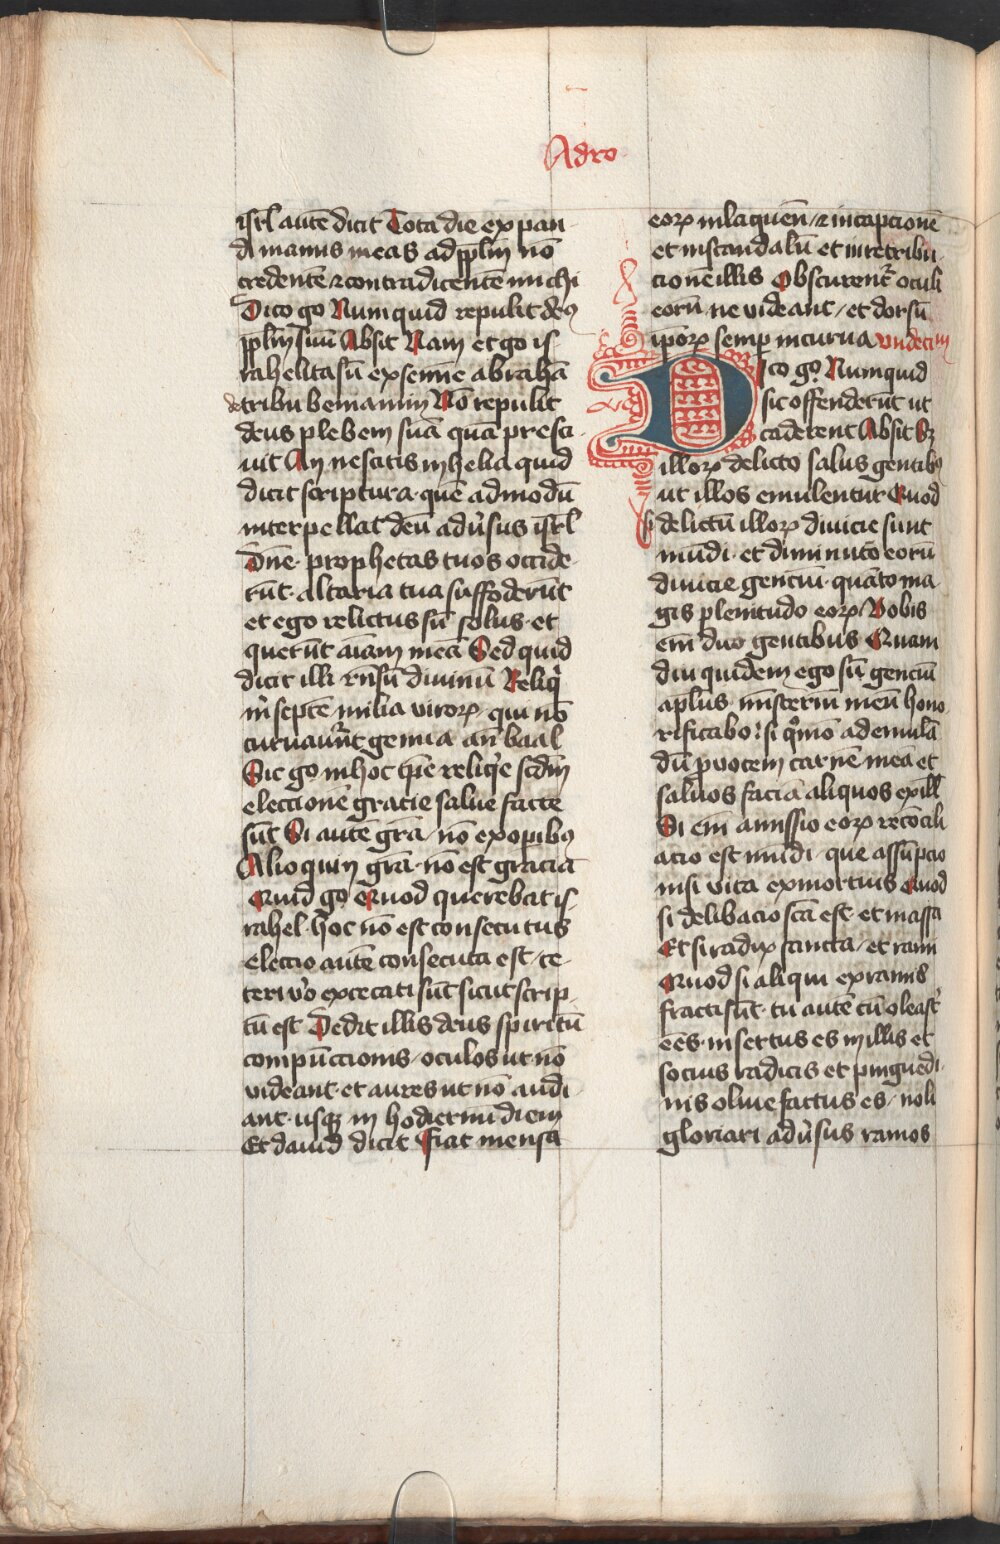 Adro
isrl̄ autē dicit Tota die expan
di manus meas ad pplm̄ nō
credentē ⁊ contradicentē michi
Dico gͦ Numquid repulit deꝰ
pplm̄ suū Absit Nam et ego is
rahelita sū ex semine abrahā
de tribu beniamin Nō repulit
deus plebem suā quā presci
uit An nescitis in helia quid
dicit scriptura quē admodū
interpellat deū adūsus isrl̄
Dn̄e prophetas tuos occide
rūt altaria tua suffoderūt
et ego relictus sū solus et
querūt aīam meā Sed quid
dicit illi rn̄sū diuinū Reliqͥ
mͥ septē milia viroꝝ qui nō
curuauerūt genua an̄ baal
Sic gͦ in hoc tp̄e reliqͥe scdm̄
eleccionē gracie salue facte
sūt Si autē grā nō ex opibꝰ
Alioquin grā nō est graciā
Quid gͦ Quod querebat is
rahel hoc nō est consecutus
eleccio autē consecuta est ce
teri vͦo excecati sūt sicut scrip
tū est Dedit illis deus spiritū
compūccionis oculos ut nō
videant et aures ut nō audi
ant usqꝫ in hodiernū diem
Et dauid dicit Fiat mensa
eoꝝ in laqueū ⁊ in capcionē
et in scandalū et in retribu
cionē illis Obscurentᷣ oculi
eorū ne videant et dorsū
ipōꝝ semp incurua vndecim
Dico gͦ Numquid
sic offenderūt ut
caderent Absit Sꝫ
illoꝝ delicto salus gentibꝰ
ut illos emulentur Quod
si delictū illoꝝ diuicie sunt
mūdi et diminutō eorū
diuicie genciū quāto ma
gis plenitudo eoꝝ Vobis
em̄ dico gentibus Quam
diu quidem ego sū genciū
apl̄us mīsteriū meū hono
rificabo si qͦmō ad emulā
dū ꝓuocem carnē meā et
saluos faciā aliquos ex ill̄
Si em̄ amissio eoꝝ recōcili
acio est mūdi que assūpcio
nisi vita ex mortuis Quod
si delibacio scā est et massa
Et si radix sancta et rami
Quod si aliqui ex ramis
fracti sūt tu autē cū oleastͥ
eēs insertus es in illis et
socius radicis et pinguedi
nis oliue factus es noli
gloriari adūsus ramos